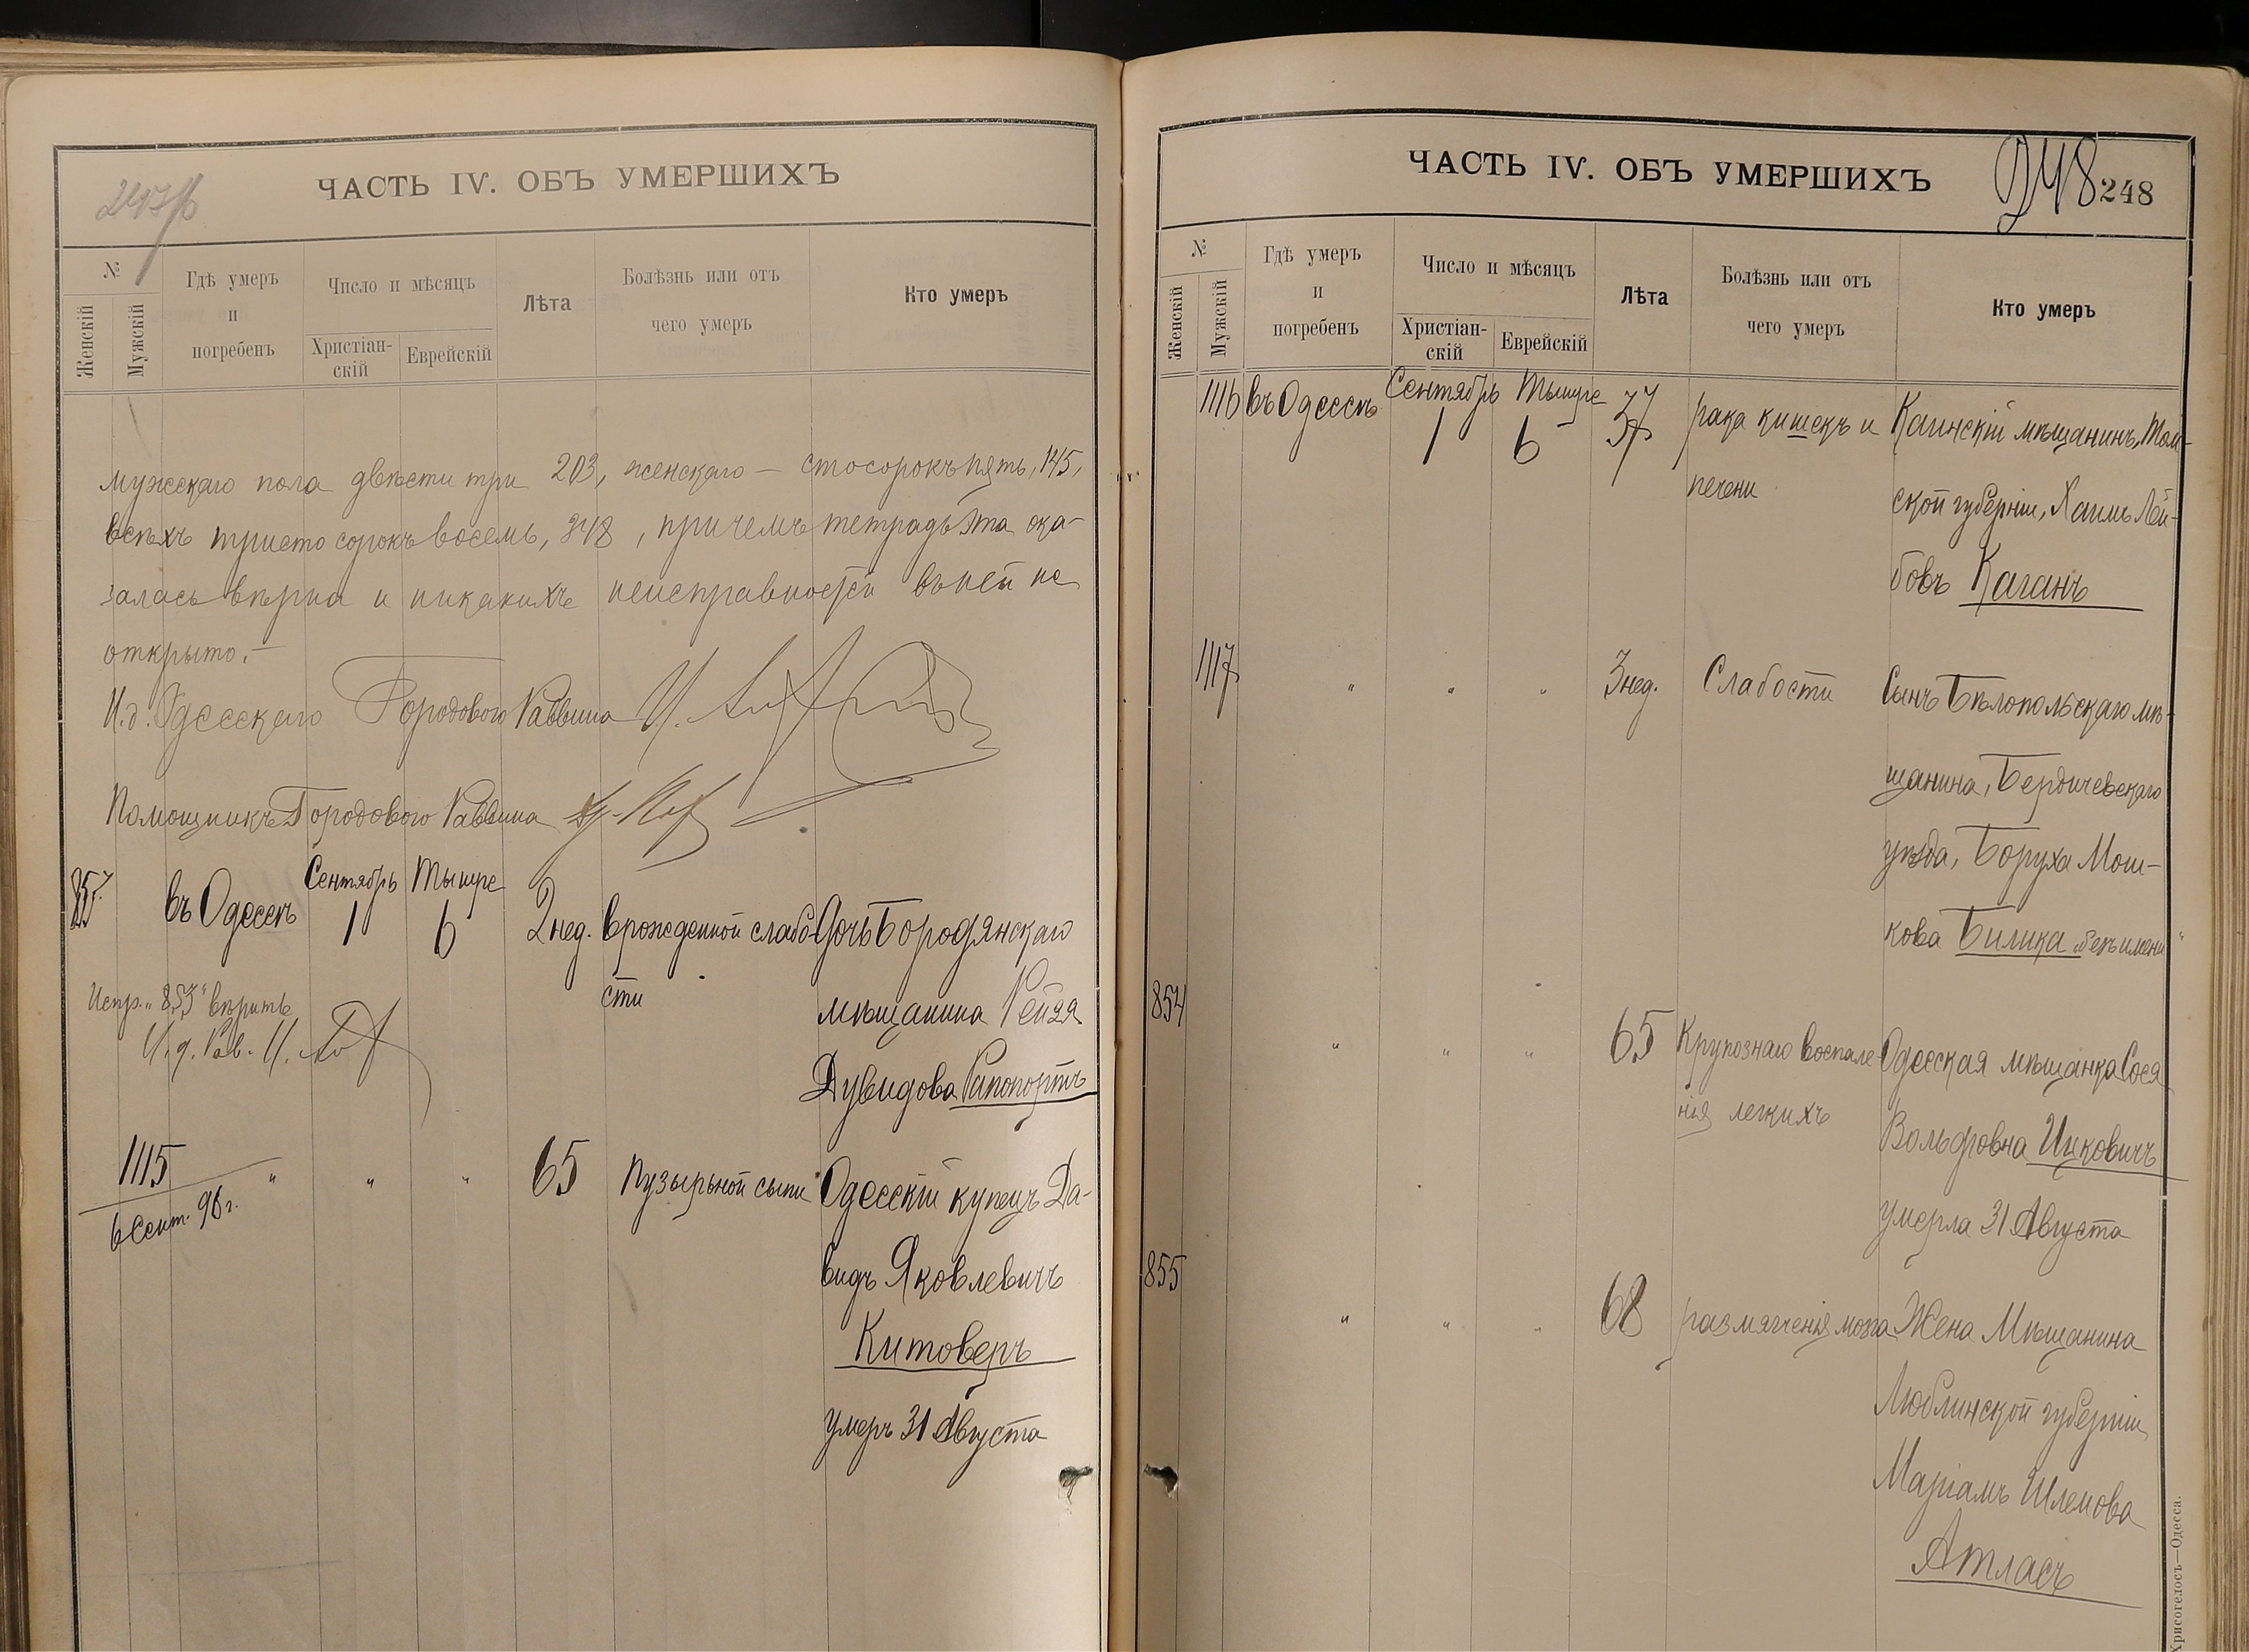 ЧАСТЬ IV. ОБЪ УМЕРШИХЪ
№
Женскій
Мужскій
Гдѣ умеръ
и
погребенъ
Число и мѣсяцъ
Христіан-
скій
Еврейскій
Лѣта
Болѣзнь или отъ
чего умеръ
Кто умеръ
мужескаго пола двѣсти три 203, женскаго — сто сорокъ пять, 145,
всѣхъ триста сорокъ восемь, 348, причемъ тетрадь эта ока-
залась вѣрна и никакихъ неисправностей въ ней не
открыто. —
И. д. Одесскаго Городового Раввина И.
Помощникъ Городового Раввина
853. въ Одессѣ Сентябрь 1 Тышре 6 2 нед. врожденной слабо-
сти
Дочь Бородянскаго
мѣщанина Рейзя
Дувидова Рапопортъ
Испр. „853" вѣрить
И. д. Рав. И.
1115 " " " 65 Пузырьной сыпи
6 Сент. 96 г.
Одесскій купецъ Да-
видъ Яковлевичъ
Китоверъ
умеръ 31 Августа
ЧАСТЬ IV. ОБЪ УМЕРШИХЪ
248 248
№
Женскій
Мужскій
Гдѣ умеръ
и
погребенъ
Число и мѣсяцъ
Христіан-
скій
Еврейскій
Лѣта
Болѣзнь или отъ
чего умеръ
Кто умеръ
1116 въ Одессѣ Сентябрь 1 Тышре 6 37 рака кишекъ и
печени
Каинскій мѣщанинъ, Том-
ской губерніи, Хаимъ Лей-
бовъ Каганъ
1117 " " " 3 нед. Слабости
Сынъ Бѣлопольскаго мѣ-
щанина, Бердичевскаго
уѣзда, Боруха Мош-
кова Билика „безъ имени"
854 " " " 65 Крупознаго воспале-
нія легкихъ
Одесская мѣщанка Сося
Вольфовна Ицковичъ
умерла 31 Августа
855 " " " 68 размягченія мозга
Жена Мѣщанина
Люблинской губерніи
Маріамъ Шлемова
Атласъ
Хрисогелосъ—Одесса.